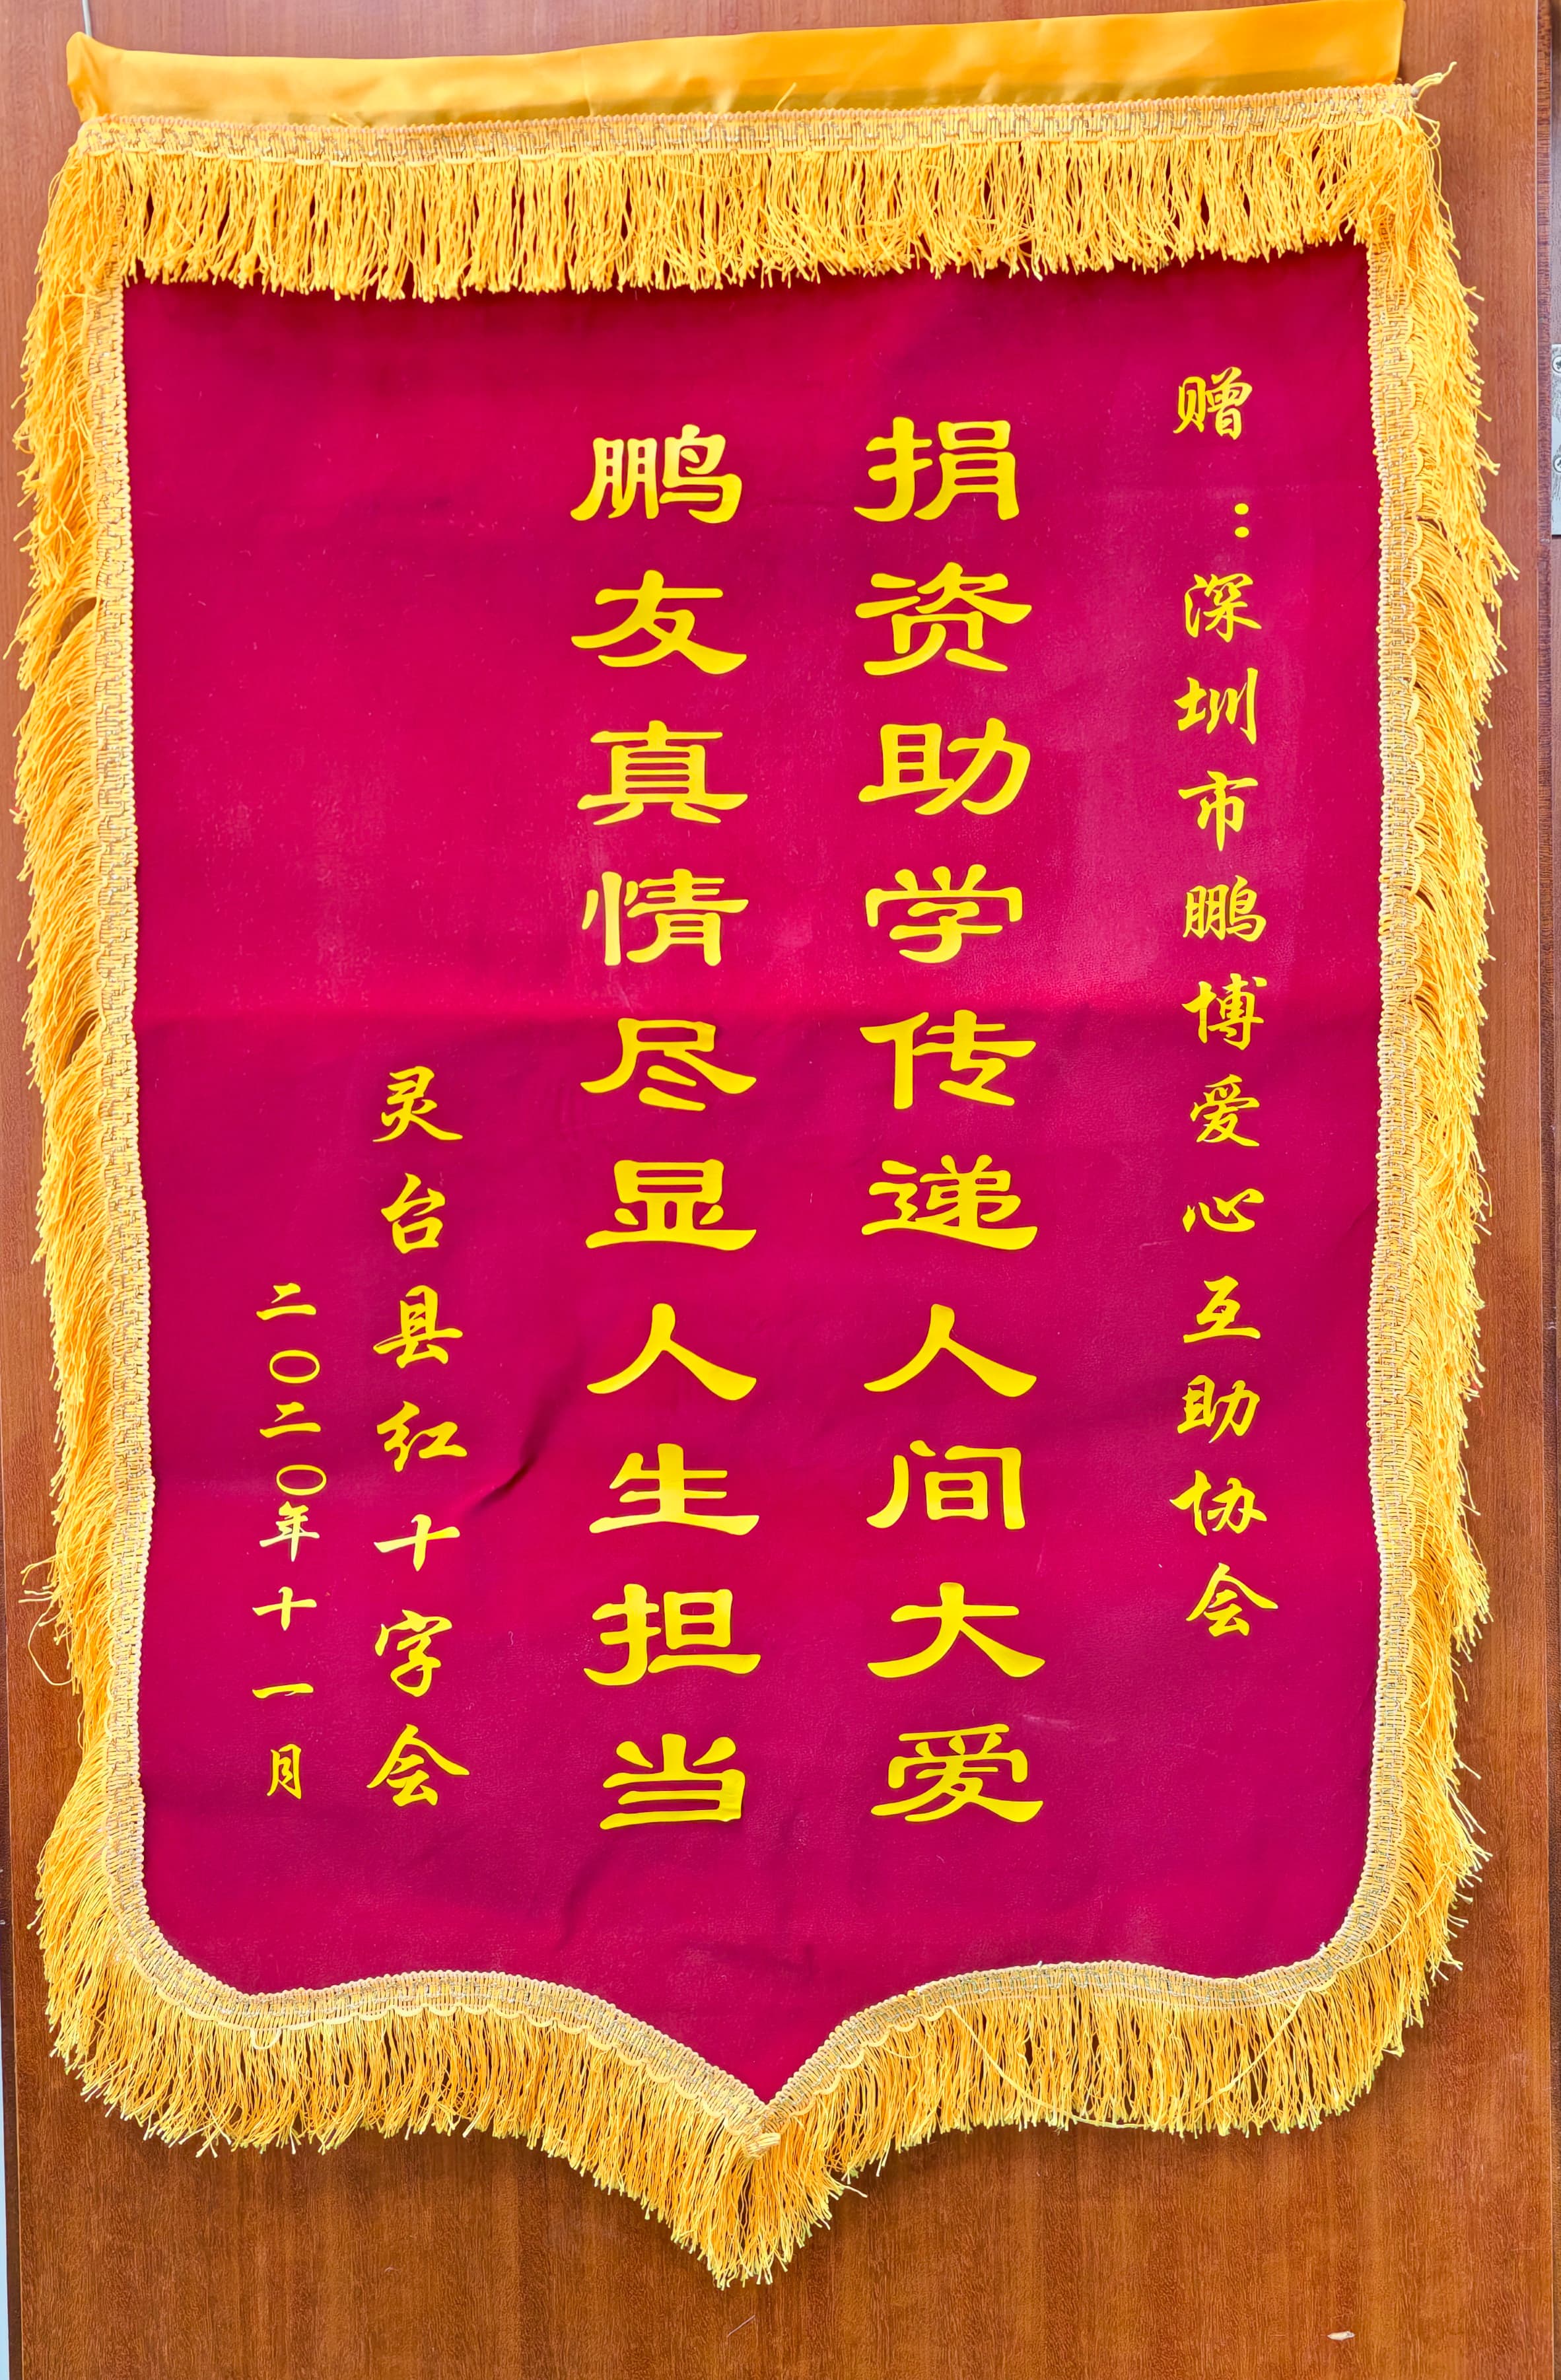 赠：深圳市鹏博爱心互助协会
捐资助学传递人间大爱
鹏友真情尽显人生担当
灵台县红十字会
二〇二〇年十一月